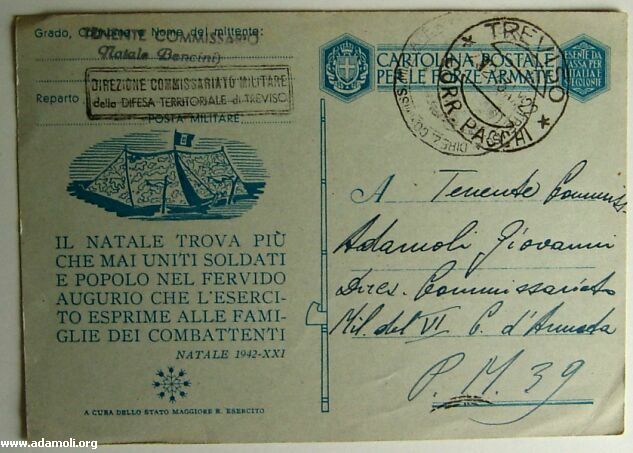 Grado, Cognome e Nome del mittente:
TENENTE COMMISSARIO
Natale Bencini
DIREZIONE COMMISSARIATO MILITARE
della DIFESA TERRITORIALE di TREVISO
Reparto
POSTA MILITARE
CARTOLINA POSTALE
PER LE FORZE ARMATE
ESENTE DA
TASSA PER
L'ITALIA E
LE COLONIE
TREVISO
CORR. PACCHI
IL NATALE TROVA PIÙ
CHE MAI UNITI SOLDATI
E POPOLO NEL FERVIDO
AUGURIO CHE L'ESERCI-
TO ESPRIME ALLE FAMI-
GLIE DEI COMBATTENTI
NATALE 1942-XXI
A CURA DELLO STATO MAGGIORE R. ESERCITO
A Tenente Commiss.
Adamoli Giovanni
Direz. Commissariato
Mil. del VI C. d'Armata
P. M. 39
www.adamoli.org